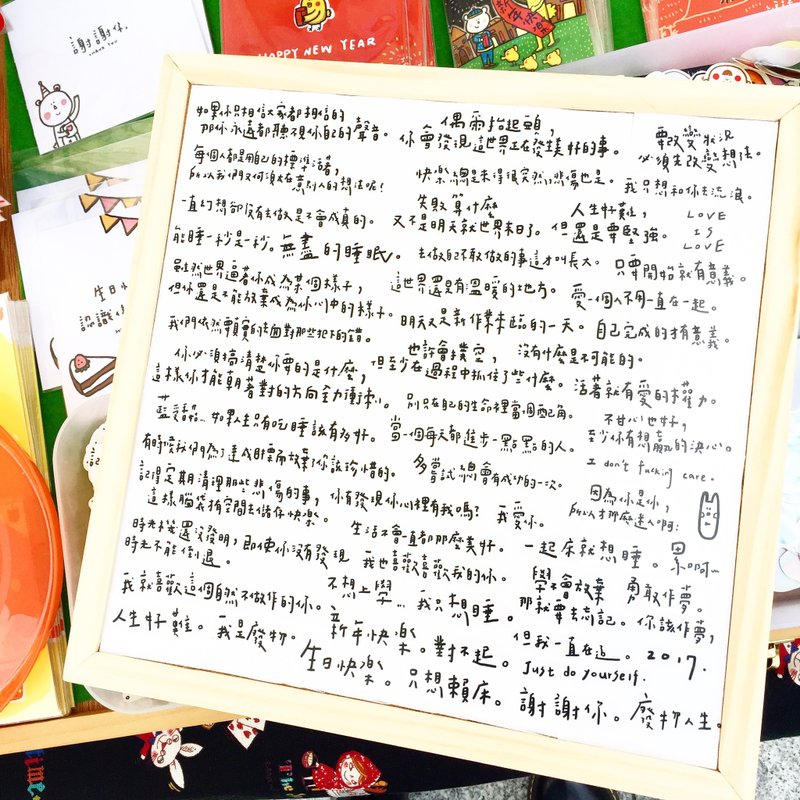 謝謝你.
THANK YOU
HAPPY NEW YEAR
新年快樂
如果你只相信大家都相信的
那你永遠都聽不見你自己的聲音。
偶爾抬起頭,
你會發現這世界正在發生美好的事。
要改變狀況
必須先改變想法。
每個人都是用自己的標準活著,
所以我們又何須在意別人的想法呢!
快樂總是來得很突然,悲傷也是。
我只想和你去流浪。
一直幻想卻沒有去做是不會成真的。
失敗算什麼
又不是明天就世界末日了。
人生好難,
但還是要堅強。
LOVE
IS
LOVE
能睡一秒是一秒。
無盡的睡眠。
去做自己不敢做的事這才叫長大。
只要開始就有意義。
雖然世界逼著你成為某個樣子,
但你還是不能放棄成為你心中的樣子。
這世界還是有溫暖的地方。
愛一個人不用一直在一起。
我們依然要誠實的去面對那些犯下的錯。
明天又是新作業來臨的一天。
自己完成的才有意義。
你必須搞清楚你要的是什麼,
這樣你才能朝著對的方向全力衝刺。
也許會撲空,
但至少在過程中抓住了些什麼。
沒有什麼是不可能的。
活著就有愛的權力。
別只在自己的生命裡當個配角。
藍受香菇...
如果人生只有吃睡該有多好。
當一個每天都進步一點點的人。
不甘心也好,
至少你有想贏的決心。
有時候我們為了達成目標而放棄了你該珍惜的。
多嘗試總會有成功的一次。
I don't fucking care.
記得定期清理那些悲傷的事,
這樣腦袋才有空間去儲存快樂。
你有發現你心裡有我嗎?
我愛你。
因為你是你,
所以才那麼迷人啊!
時光機還沒發明,即使你沒有發現
時光不能倒退。
生活不會一直都那麼美好。
一起床就想睡。
累啊~
我也喜歡喜歡我的你。
學不會放棄
那就要去忘記。
勇敢作夢。
我就喜歡這個自然不做作的你。
不想上學...
我只想睡。
你該作夢,
但我一直在追。
2017.
人生好難。
我是廢物。
新年快樂。
對不起。
Just do yourself.
生日快樂。
只想賴床。
謝謝你。
廢物人生。
生日
認識